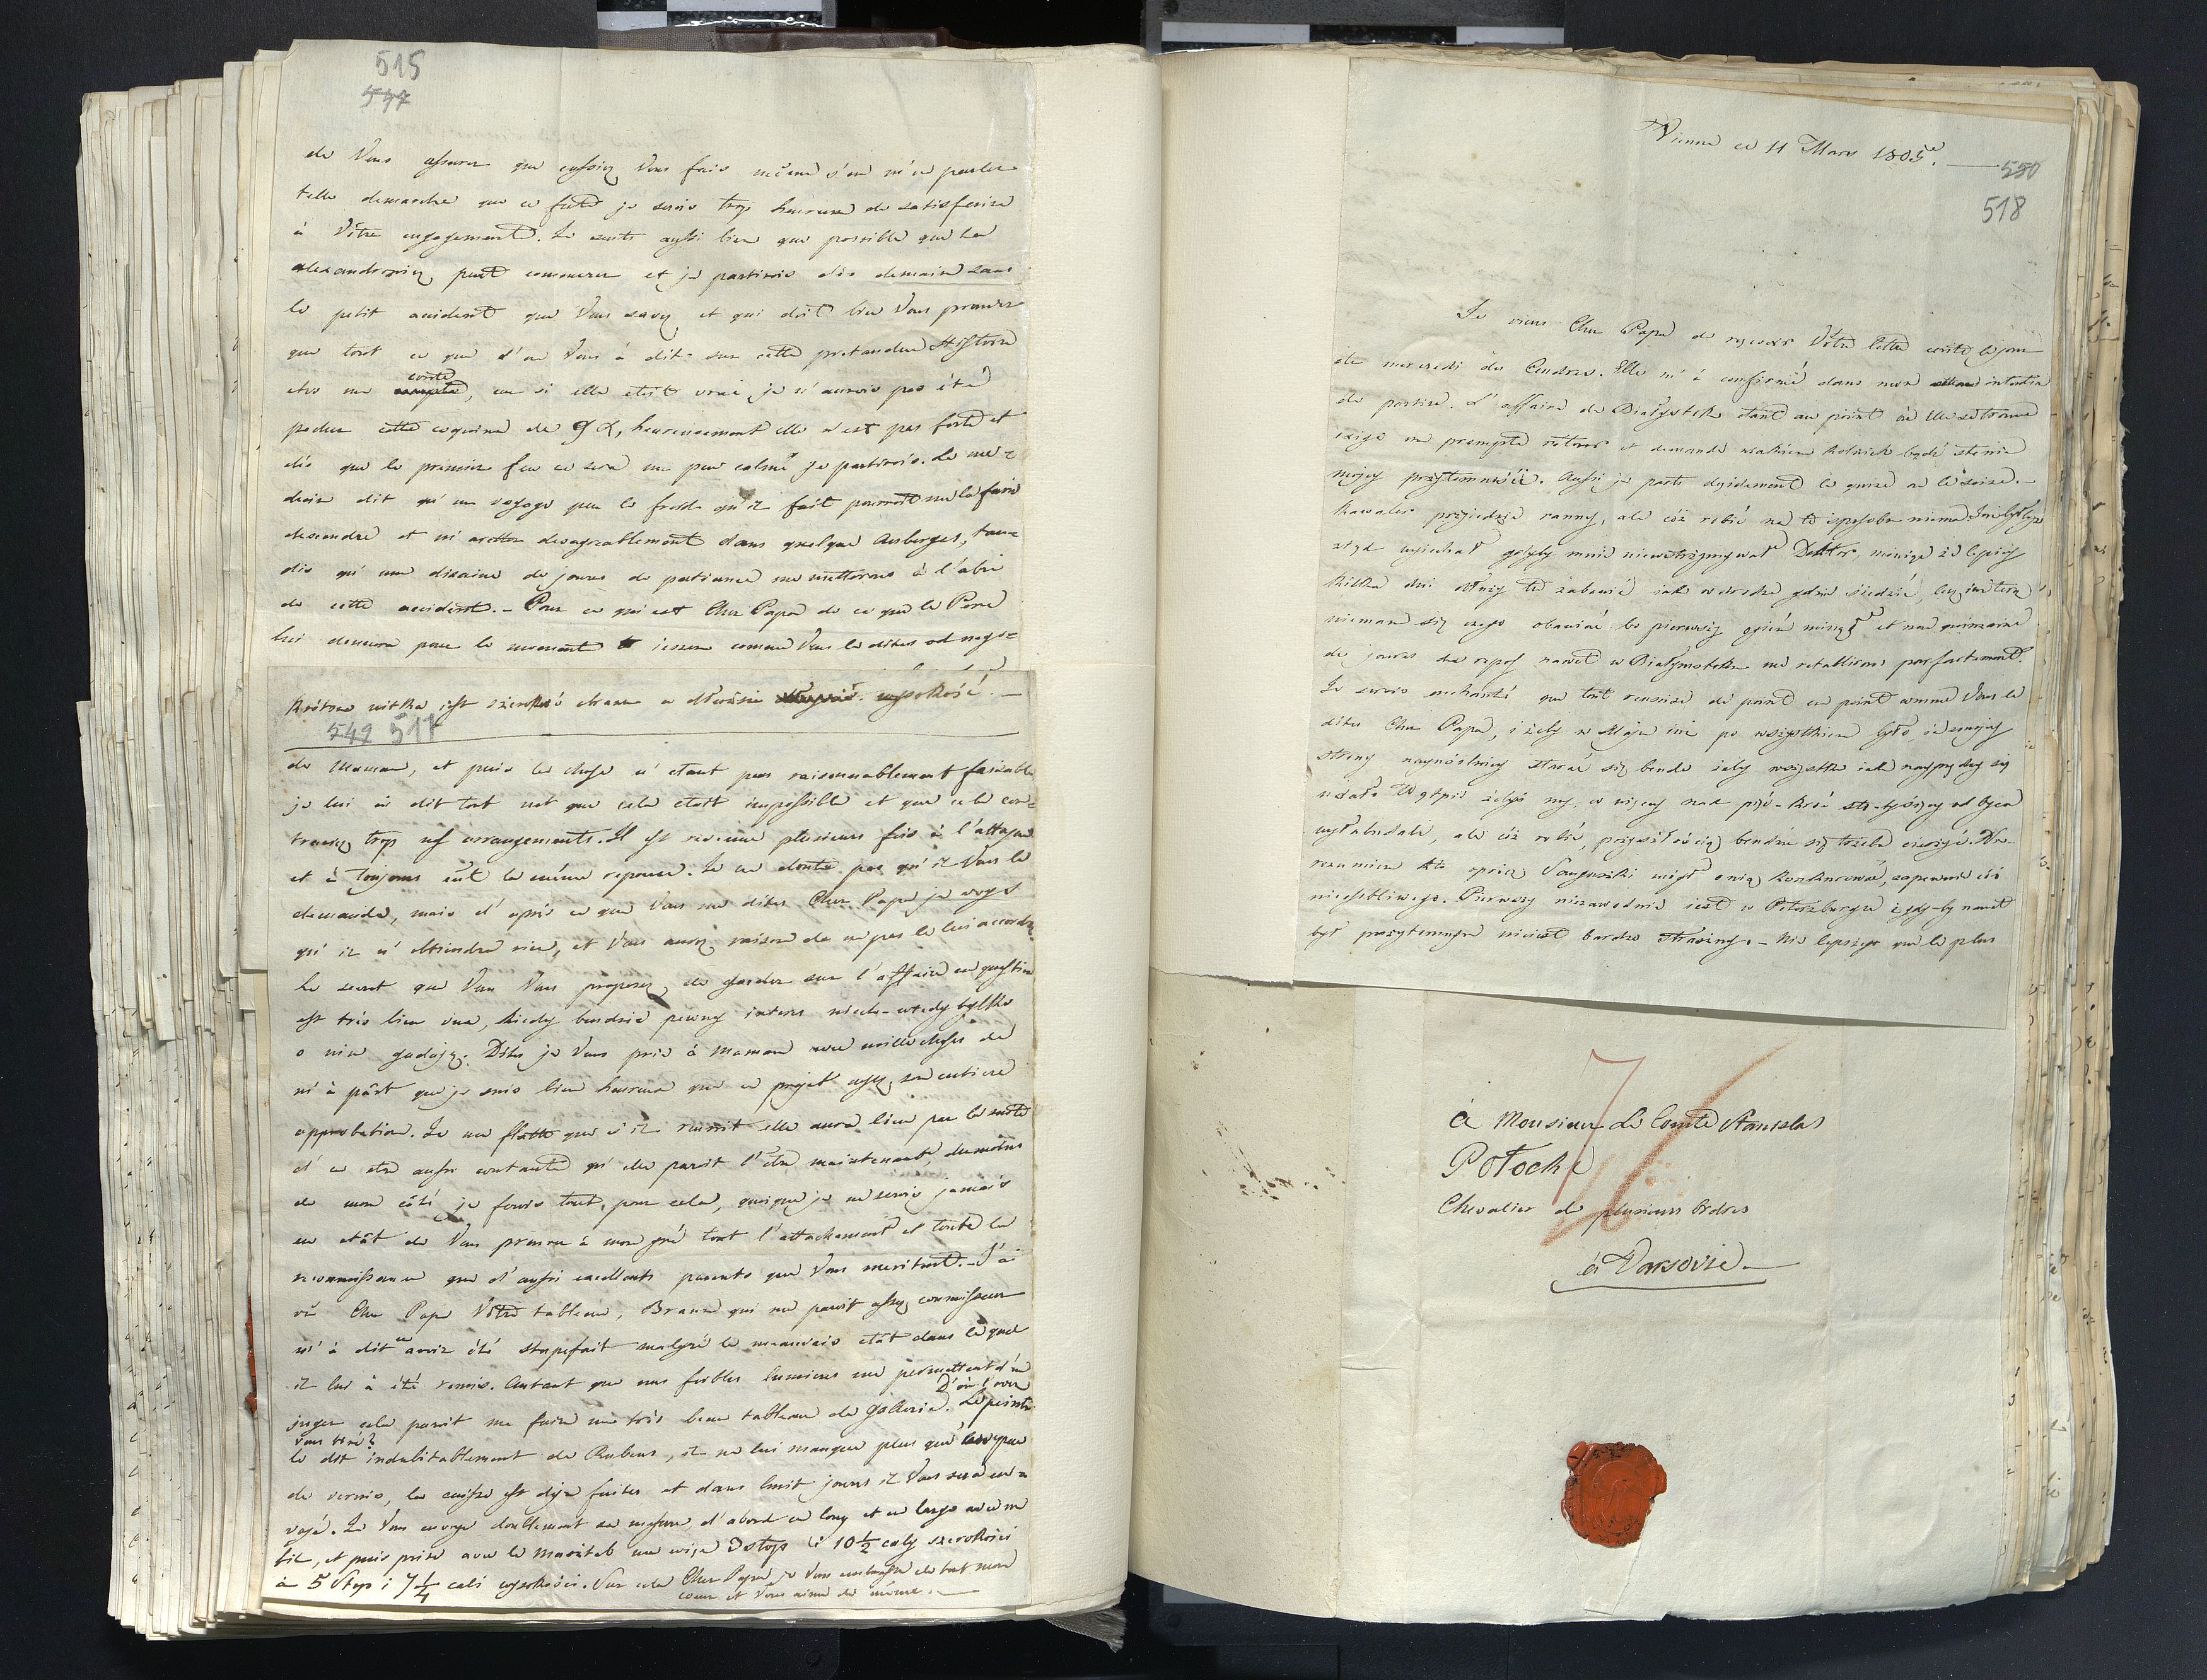 515
547
de Vous assurer que eussiez Vous fais même s'en m'en parler
telle demarche que ce fut je serois trop heureux de satisfaire
à Vôtre engagement. Je sents aussi bien que possible que la
alexandrowicz peut commencer et je partirois dès demain sans
le petit accident que Vous savez et qui doit bien Vous prouver
que tout ce que l'on Vous à dit sur cette pretendue Histoire
etre un conte, car si elle etoit vraie je n'aurois pas été
pecher cette coquine de heureusement elle n'est pas forte et
dès que le premier feu en sera un peu calmé je partirois. Le mé=
decin dit qu'un voyage par le froid qu'il fait pourroit me la faire
descendre et m'aretter desagreablement dans quelque Auberges, tan=
dis qu'une disaine de jours de patiance me metterons à l'abri
de cette accident. – Pour ce qui est Cher Papa de ce que le Pere
lui donnera pour le moment comme Vous le dites od nego=
Krótsza nitka jest szerokość obrazu a dłuższa wysokość. –
549 517
de Maman, et puis la chose n'etant pas raisonnablement faisable
je lui ai dit tout net que cela etoit impossible et que cela con=
trariez trop nos arrangements. Il est revenue plusieurs fois à l'attaque
et à toujours eüt la même reponse. Je ne doute pas qu'il Vous le
demande, mais d'après ce que Vous me dites Cher Papa je voys
qu'il n'obtiendra rien, et Vous aurez raison de ne pas le lui accorder
Le secret que Vous Vous proposez de garder sur l'affaire en question
est très bien vue, kiedy bendzie pewny interes niech-wtedy tylko
o nim gadają. Dites je Vous prie à Maman mille choses de
m'à pârt que je suis bien heureux que ce projet aye son entiere
approbation. Je me flatte que s'il reussit elle aura lieu par la suite
d'en etre aussi contante qu'elle paroit l'être maintenant, du moins
de mon côté je ferois tout pour cela, quoique je ne serois jamais
en etât de Vous prouver à mon gré tout l'attachement et toute la
reconnoissance que d'aussi excellents parents que Vous meritent. – J'ai
vû Cher Papa Vôtre tableau, Braun qui me paroit assez connoisseur
m'à dit en avoir été stupefait malgré le mauvais etât dans lequel
il lui à été remis. Autant que mes foibles lumieres me permettent d'en
juger cela paroit me faire un très beau tableau de gallerie. D'où l'avez
Vous tiré? Le peintre
le dit indubitablement de Rubens, il ne lui manque plus que
de vernis, la caisse est deja faites et dans huit jours il Vous sera en=
voyé. Je Vous envoye doublement sa mesure, d'abord en long et en large avec un
fil, et puis prise avec le 3 stop i 10 ½ caly szerokości
à 5 stop i 7 ¼ cali wysokości. Sur cela Cher Papa je Vous embrasse de tout mon
coeur et Vous aime de même. –
Vienne ce 11 Mars 1805. –
550
518
Je viens Cher Papa de reçevoir Vôtre lettre ecrite le jour
de mercredi des Cendres. Elle m'à confirmé dans mon intention
de partire. L'affaire de Białystok etant au point où elle se trouve
exige un prompte retour et demande
mojey przytomności. Aussi je parts decidement le quinze ou le seize. –
Kawaler przyiedzie ranny, ale cóż robić na to sposobu niema
wyiechać gdyby mnie niewstrzymywał Doktor, mówiąc że lepiey
kilka dni dłużey tu zabawić iak w drodze gdzie siedzić,
niemam się czego obawiać bo pierwszy ogień minął et une quinzaine
de jours de repos nawet w Białymstoku me retabliroit parfaitement.
Je serois enchanté que tout reussise de point en point comme Vous le
dites Cher Papa, i żeby w Maju iuż po wszystkiem było, z moiey
strony naymocniey starać się bende żeby wszystko iak nayprędzey się
udało. Wątpie żebyś my co więcey nad pięć-kroć sto-tysięcy od Oyca
wyłudzali, ale cóż robić, przyszłością bendzie się trzeba cieszyć. Nie
rozumiem kto oprócz Sanguszki mógł o nią konkurować, zapewne ktoś
nieosobliwego. Pierwszy niezawodnie iest w Petersburgu i gdy-by nawet
był przytomnym nieiest bardzo straszny. – Nic lepszego que le plus
à Monsieur Le Comte Stanislas
Potocki
Chevalier de plusieurs Ordres
à Varsovie –